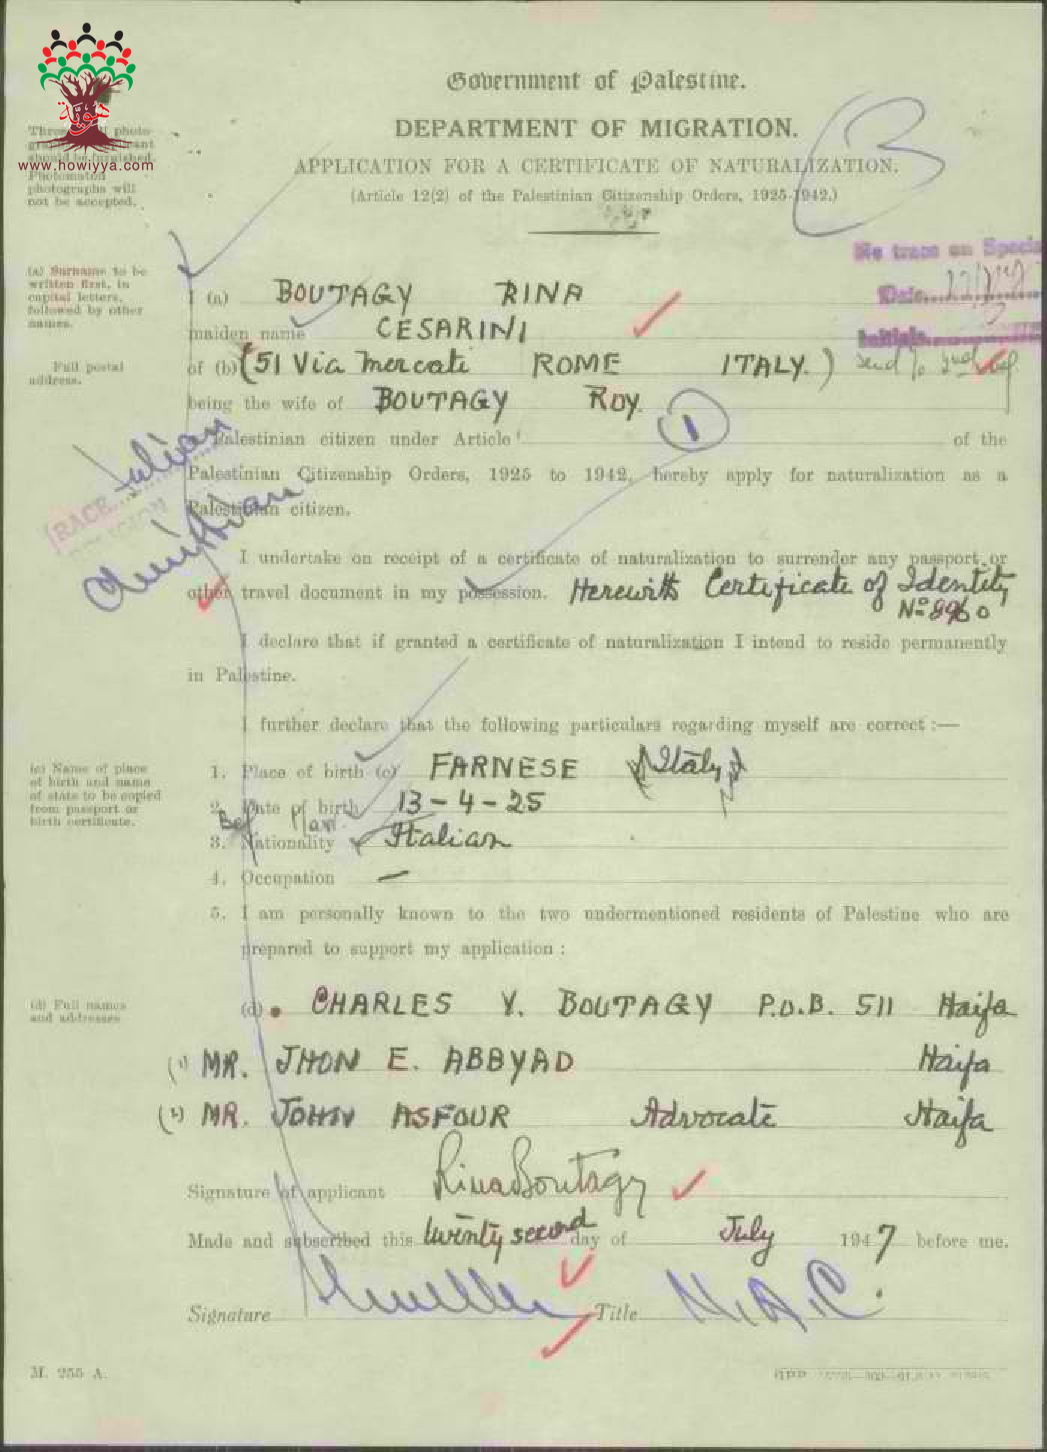 Government of Palestine.
DEPARTMENT OF MIGRATION.
APPLICATION FOR A CERTIFICATE OF NATURALIZATION.
(Article 12(2) of the Palestinian Citizenship Orders, 1925-1942.)
هوية
www.howiyya.com
Photomaton
photographs will
not be accepted.
3
No trace on Specia
Date
Initials
(a) Surname to be
written first, in
capital letters,
followed by other
names.
I (a) BOUTAGY RINA
maiden name CESARINI
Full postal
address.
of (b) (51 Via Mercati ROME ITALY.)
send to 2nd
being the wife of BOUTAGY ROY.
1
a Palestinian citizen under Article of the
Palestinian Citizenship Orders, 1925 to 1942, hereby apply for naturalization as a
Palestinian citizen.
RACE Italian
RELIGION Christian
I undertake on receipt of a certificate of naturalization to surrender any passport or
other travel document in my possession. Herewith Certificate of Identity
No 8960
I declare that if granted a certificate of naturalization I intend to reside permanently
in Palestine.
I further declare that the following particulars regarding myself are correct :—
(c) Name of place
of birth and name
of state to be copied
from passport or
birth certificate.
1. Place of birth (c) FARNESE Italy
2. Date of birth 13-4-25
3. Nationality Italian
4. Occupation —
5. I am personally known to the two undermentioned residents of Palestine who are
prepared to support my application :
(d) Full names
and addresses
(d) CHARLES Y. BOUTAGY P.O.B. 511 Haifa
(1) MR. JHON E. ABBYAD Haifa
(2) MR. JOHN ASFOUR Advocate Haifa
Signature of applicant Rina Boutagy
Made and subscribed this twenty second day of July 1947 before me.
Signature Title
M. 255 A.